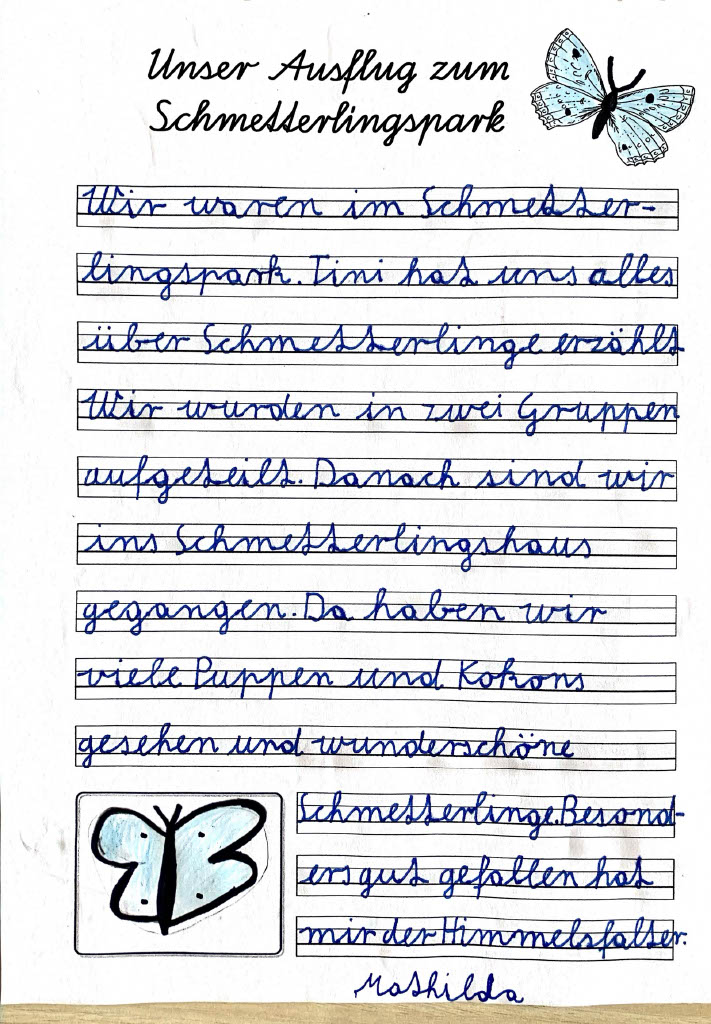 Unser Ausflug zum
Schmetterlingspark
Wir waren im Schmetter-
lingspark. Tini hat uns alles
über Schmetterlinge erzählt
Wir wurden in zwei Gruppen
aufgeteilt. Danach sind wir
ins Schmetterlingshaus
gegangen. Da haben wir
viele Puppen und Kokons
gesehen und wunderschöne
Schmetterlinge. Besond-
ers gut gefallen hat
mir der Himmelsfalter.
Mathilda